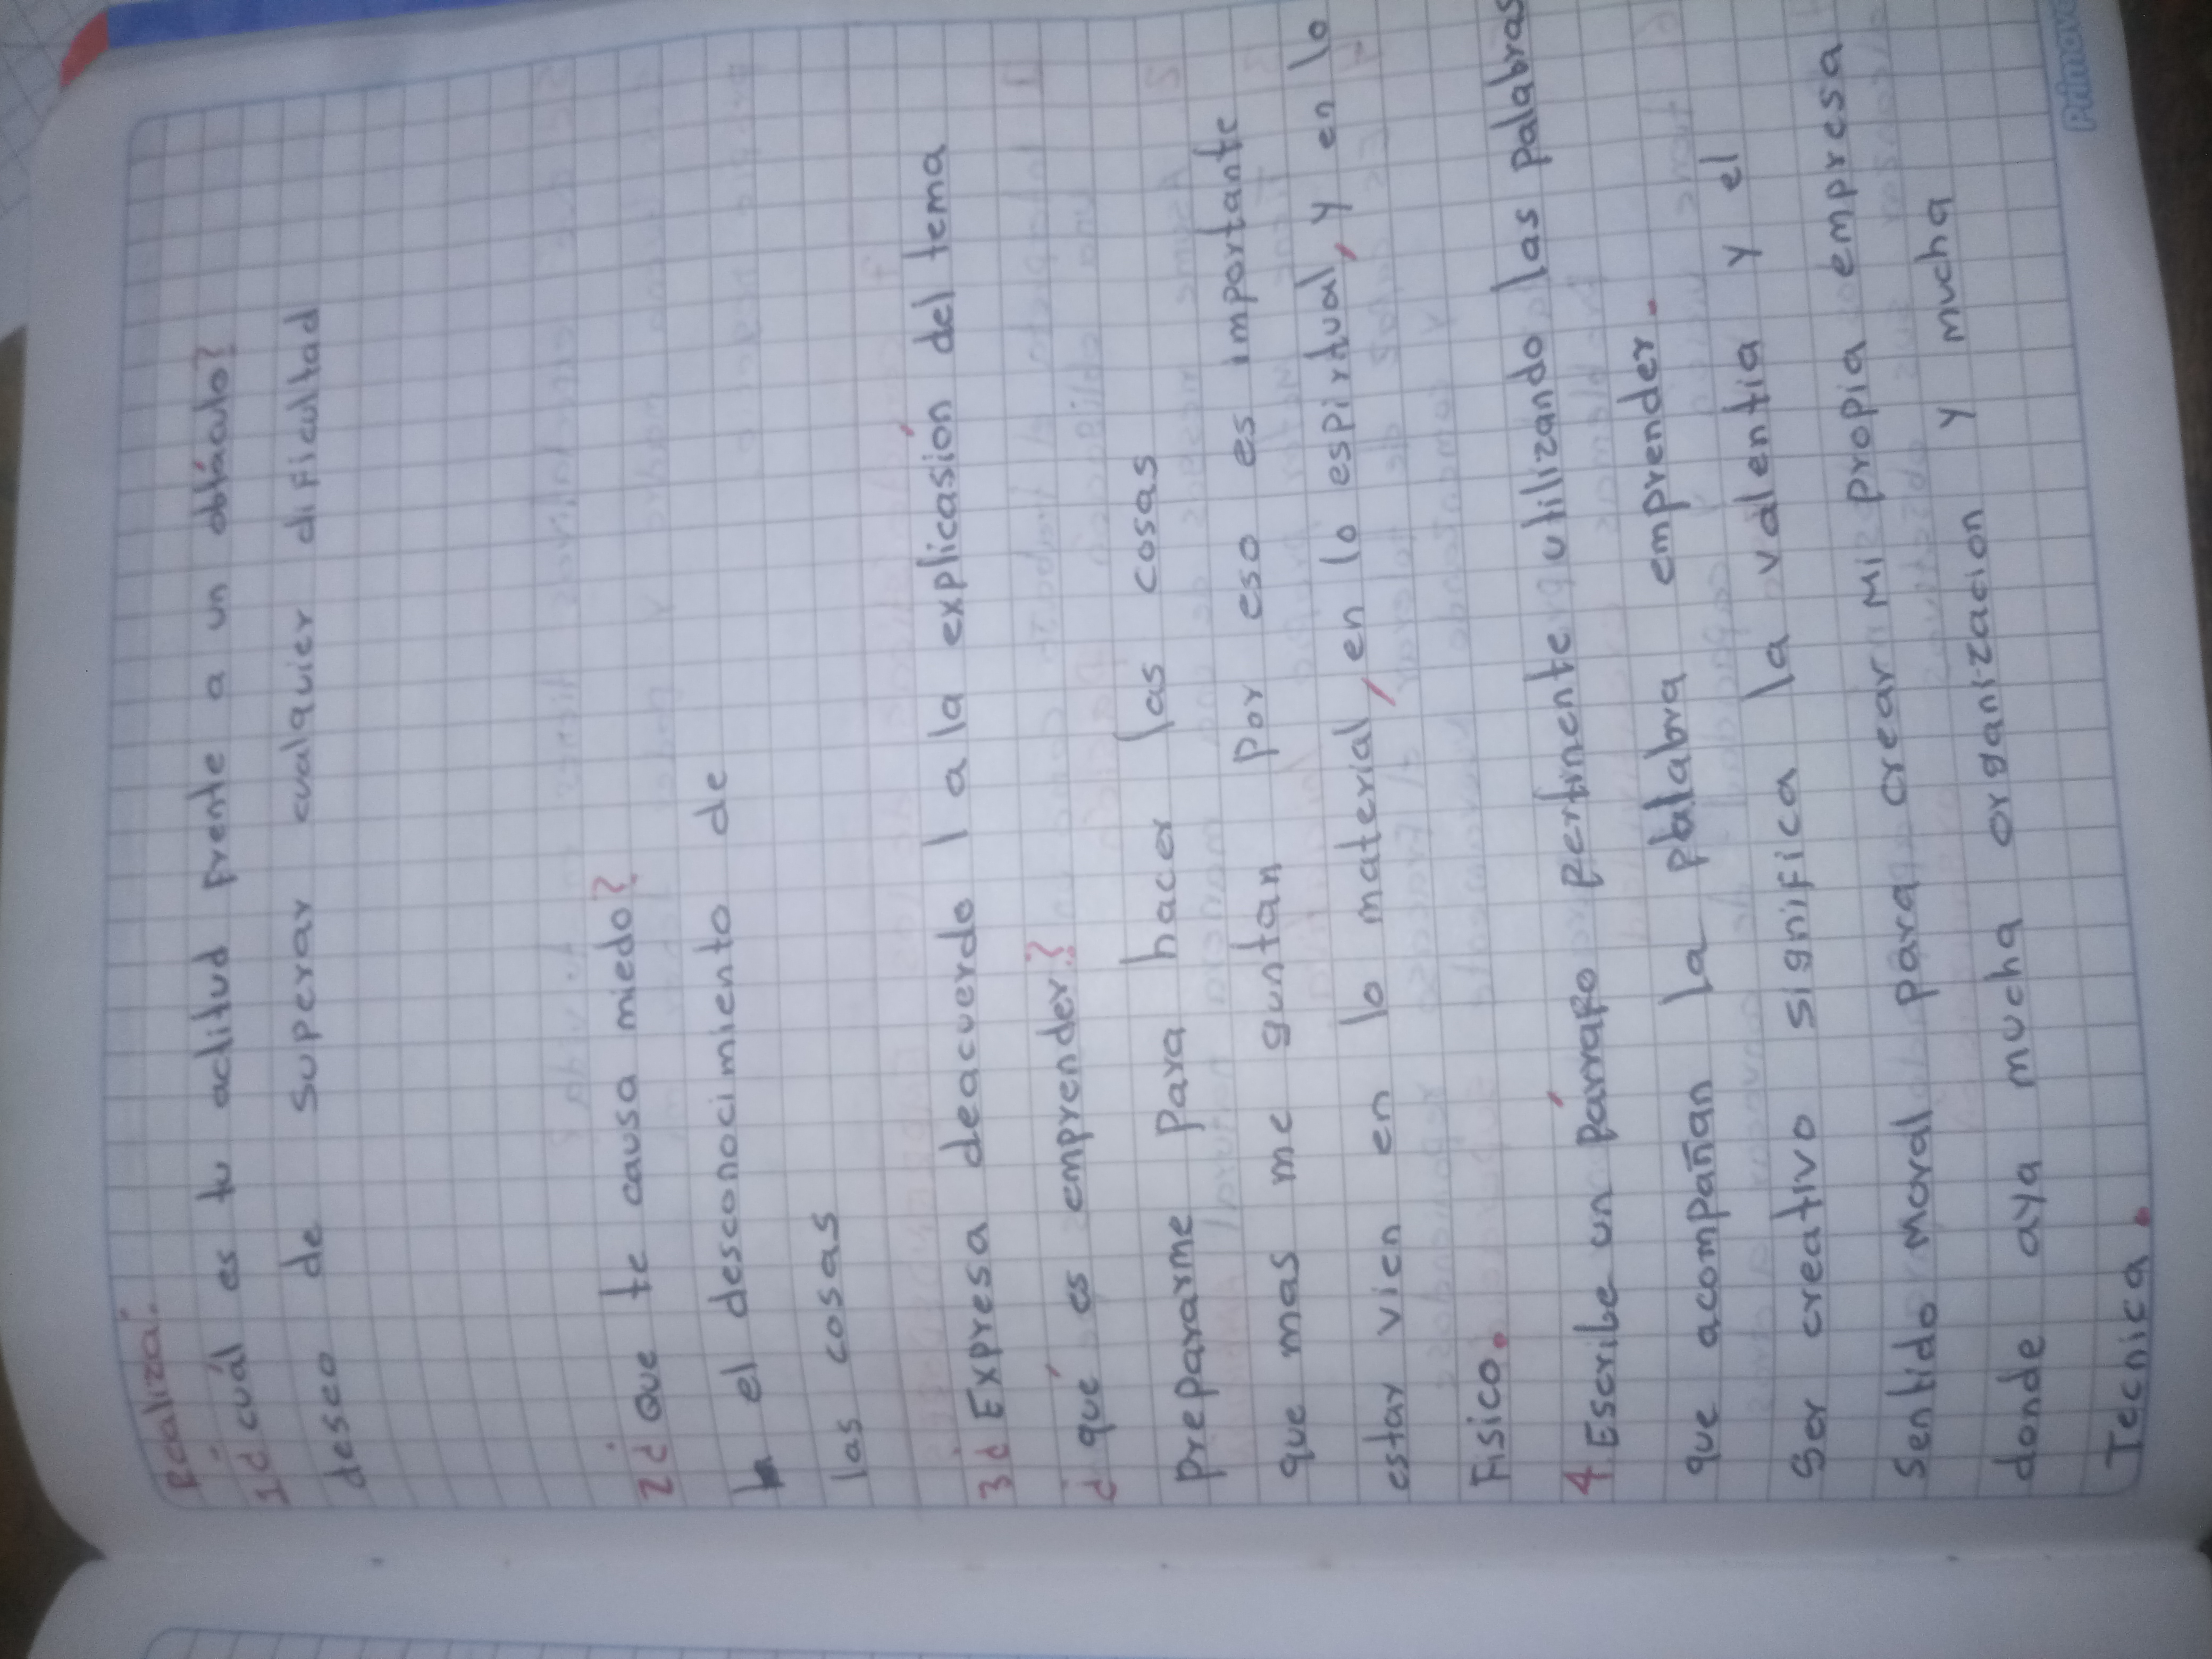 Realiza:
1¿cuál es tu actitud frente a un obtáculo?
deseo de superar cualquier dificultad
2¿Que te causa miedo?
el desconocimiento de
las cosas
3¿Expresa deacuerdo l a la explicasión del tema
¿qué es emprender?
prepararme para hacer las cosas
que mas me guntan por eso es importante
estar vien en lo material, en lo espiritual, y en lo
Fisico.
4. Escribe un párrafo pertinente utilizando las palabras
que acompañan la palabra emprender.
Ser creativo significa la valentia y el
Sentido Moral para crear Mi propia empresa
donde aya mucha organizacion y mucha
Tecnica.